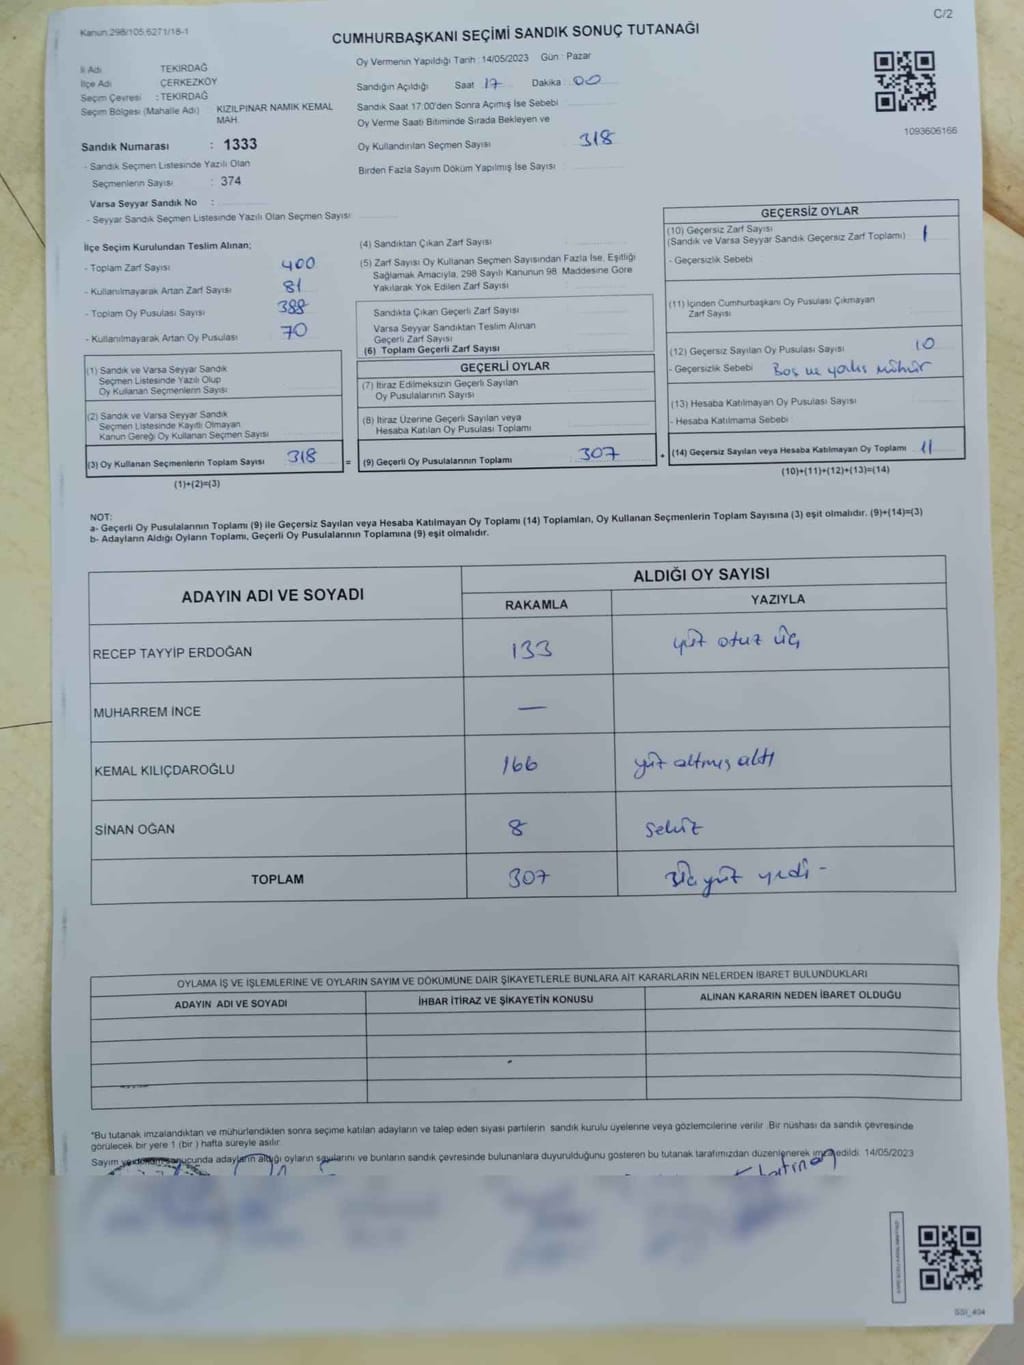 Kanun.298/105,6271/18-1
C/2
CUMHURBAŞKANI SEÇİMİ SANDIK SONUÇ TUTANAĞI
İl Adı TEKİRDAĞ
İlçe Adı ÇERKEZKÖY
Seçim Çevresi : TEKİRDAĞ
Seçim Bölgesi (Mahalle Adı) KIZILPINAR NAMIK KEMAL MAH.
Sandık Numarası : 1333
- Sandık Seçmen Listesinde Yazılı Olan
Seçmenlerin Sayısı : 374
Varsa Seyyar Sandık No :
- Seyyar Sandık Seçmen Listesinde Yazılı Olan Seçmen Sayısı
Oy Vermenin Yapıldığı Tarih : 14/05/2023 Gün : Pazar
Sandığın Açıldığı Saat 17 Dakika 00
Sandık Saat 17:00'den Sonra Açımış İse Sebebi
Oy Verme Saati Bitiminde Sırada Bekleyen ve
Oy Kullandırılan Seçmen Sayısı 318
Birden Fazla Sayım Döküm Yapılmış İse Sayısı
1093606166
İlçe Seçim Kurulundan Teslim Alınan;
- Toplam Zarf Sayısı 400
- Kullanılmayarak Artan Zarf Sayısı 81
- Toplam Oy Pusulası Sayısı 388
- Kullanılmayarak Artan Oy Pusulası 70
(1) Sandık ve Varsa Seyyar Sandık
Seçmen Listesinde Yazılı Olup
Oy Kullanan Seçmenlerin Sayısı
(2) Sandık ve Varsa Seyyar Sandık
Seçmen Listesinde Kayıtlı Olmayan
Kanun Gereği Oy Kullanan Seçmen Sayısı
(3) Oy Kullanan Seçmenlerin Toplam Sayısı 318
(1)+(2)=(3)
(4) Sandıktan Çıkan Zarf Sayısı
(5) Zarf Sayısı Oy Kullanan Seçmen Sayısından Fazla İse, Eşitliği
Sağlamak Amacıyla, 298 Sayılı Kanunun 98. Maddesine Göre
Yakılarak Yok Edilen Zarf Sayısı
Sandıkta Çıkan Geçerli Zarf Sayısı
Varsa Seyyar Sandıktan Teslim Alınan
Geçerli Zarf Sayısı
(6) Toplam Geçerli Zarf Sayısı
GEÇERLİ OYLAR
(7) İtiraz Edilmeksizin Geçerli Sayılan
Oy Pusulalarının Sayısı
(8) İtiraz Üzerine Geçerli Sayılan veya
Hesaba Katılan Oy Pusulası Toplamı
= (9) Geçerli Oy Pusulalarının Toplamı 307
GEÇERSİZ OYLAR
(10) Geçersiz Zarf Sayısı
(Sandık ve Varsa Seyyar Sandık Geçersiz Zarf Toplamı) 1
- Geçersizlik Sebebi
(11) İçinden Cumhurbaşkanı Oy Pusulası Çıkmayan
Zarf Sayısı
(12) Geçersiz Sayılan Oy Pusulası Sayısı 10
- Geçersizlik Sebebi Boş ve yanlış mühür
(13) Hesaba Katılmayan Oy Pusulası Sayısı
- Hesaba Katılmama Sebebi
+ (14) Geçersiz Sayılan veya Hesaba Katılmayan Oy Toplamı 11
(10)+(11)+(12)+(13)=(14)
NOT:
a- Geçerli Oy Pusulalarının Toplamı (9) ile Geçersiz Sayılan veya Hesaba Katılmayan Oy Toplamı (14) Toplamları, Oy Kullanan Seçmenlerin Toplam Sayısına (3) eşit olmalıdır. (9)+(14)=(3)
b- Adayların Aldığı Oyların Toplamı, Geçerli Oy Pusulalarının Toplamına (9) eşit olmalıdır.
ADAYIN ADI VE SOYADI ALDIĞI OY SAYISI
RAKAMLA YAZIYLA
RECEP TAYYİP ERDOĞAN 133 yüz otuz üç
MUHARREM İNCE —
KEMAL KILIÇDAROĞLU 166 yüz altmış altı
SİNAN OĞAN 8 sekiz
TOPLAM 307 üç yüz yedi -
OYLAMA İŞ VE İŞLEMLERİNE VE OYLARIN SAYIM VE DÖKÜMÜNE DAİR ŞİKAYETLERLE BUNLARA AİT KARARLARIN NELERDEN İBARET BULUNDUKLARI
ADAYIN ADI VE SOYADI İHBAR İTİRAZ VE ŞİKAYETİN KONUSU ALINAN KARARIN NEDEN İBARET OLDUĞU
*Bu tutanak imzalandıktan ve mühürlendikten sonra seçime katılan adayların ve talep eden siyasi partilerin sandık kurulu üyelerine veya gözlemcilerine verilir. Bir nüshası da sandık çevresinde
görülecek bir yere 1 (bir ) hafta süreyle asılır.
Sayım ve döküm sonucunda adayların aldığı oyların sayılarını ve bunların sandık çevresinde bulunanlara duyurulduğunu gösteren bu tutanak tarafımızdan düzenlenerek imza edildi. 14/05/2023
SSI_404